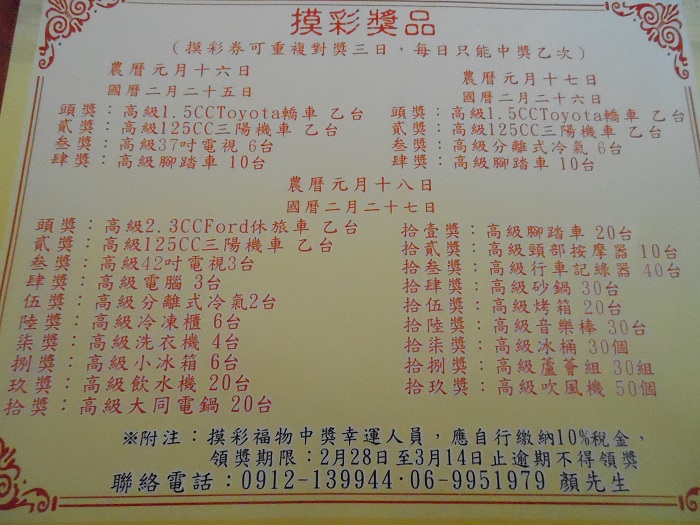 摸彩獎品
(摸彩券可重複對獎三日，每日只能中獎乙次)
農曆元月十六日
國曆二月二十五日
頭獎：高級1.5CCToyota轎車 乙台
貳獎：高級125CC三陽機車 乙台
叁獎：高級37吋電視 6台
肆獎：高級腳踏車 10台
農曆元月十七日
國曆二月二十六日
頭獎：高級1.5CCToyota轎車 乙台
貳獎：高級125CC三陽機車 乙台
叁獎：高級分離式冷氣 6台
肆獎：高級腳踏車 10台
農曆元月十八日
國曆二月二十七日
頭獎：高級2.3CCFord休旅車 乙台
貳獎：高級125CC三陽機車 乙台
叁獎：高級42吋電視3台
肆獎：高級電腦 3台
伍獎：高級分離式冷氣2台
陸獎：高級冷凍櫃 6台
柒獎：高級洗衣機 4台
捌獎：高級小冰箱 6台
玖獎：高級飲水機 20台
拾獎：高級大同電鍋 20台
拾壹獎：高級腳踏車 20台
拾貳獎：高級頸部按摩器 10台
拾叁獎：高級行車記錄器 40台
拾肆獎：高級砂鍋 30台
拾伍獎：高級烤箱 20台
拾陸獎：高級音樂棒 30台
拾柒獎：高級冰桶 30個
拾捌獎：高級蘆薈組 30組
拾玖獎：高級吹風機 50個
※附注：摸彩福物中獎幸運人員，應自行繳納10%稅金，
領獎期限：2月28日至3月14日止逾期不得領獎
聯絡電話：0912-139944·06-9951979 顏先生